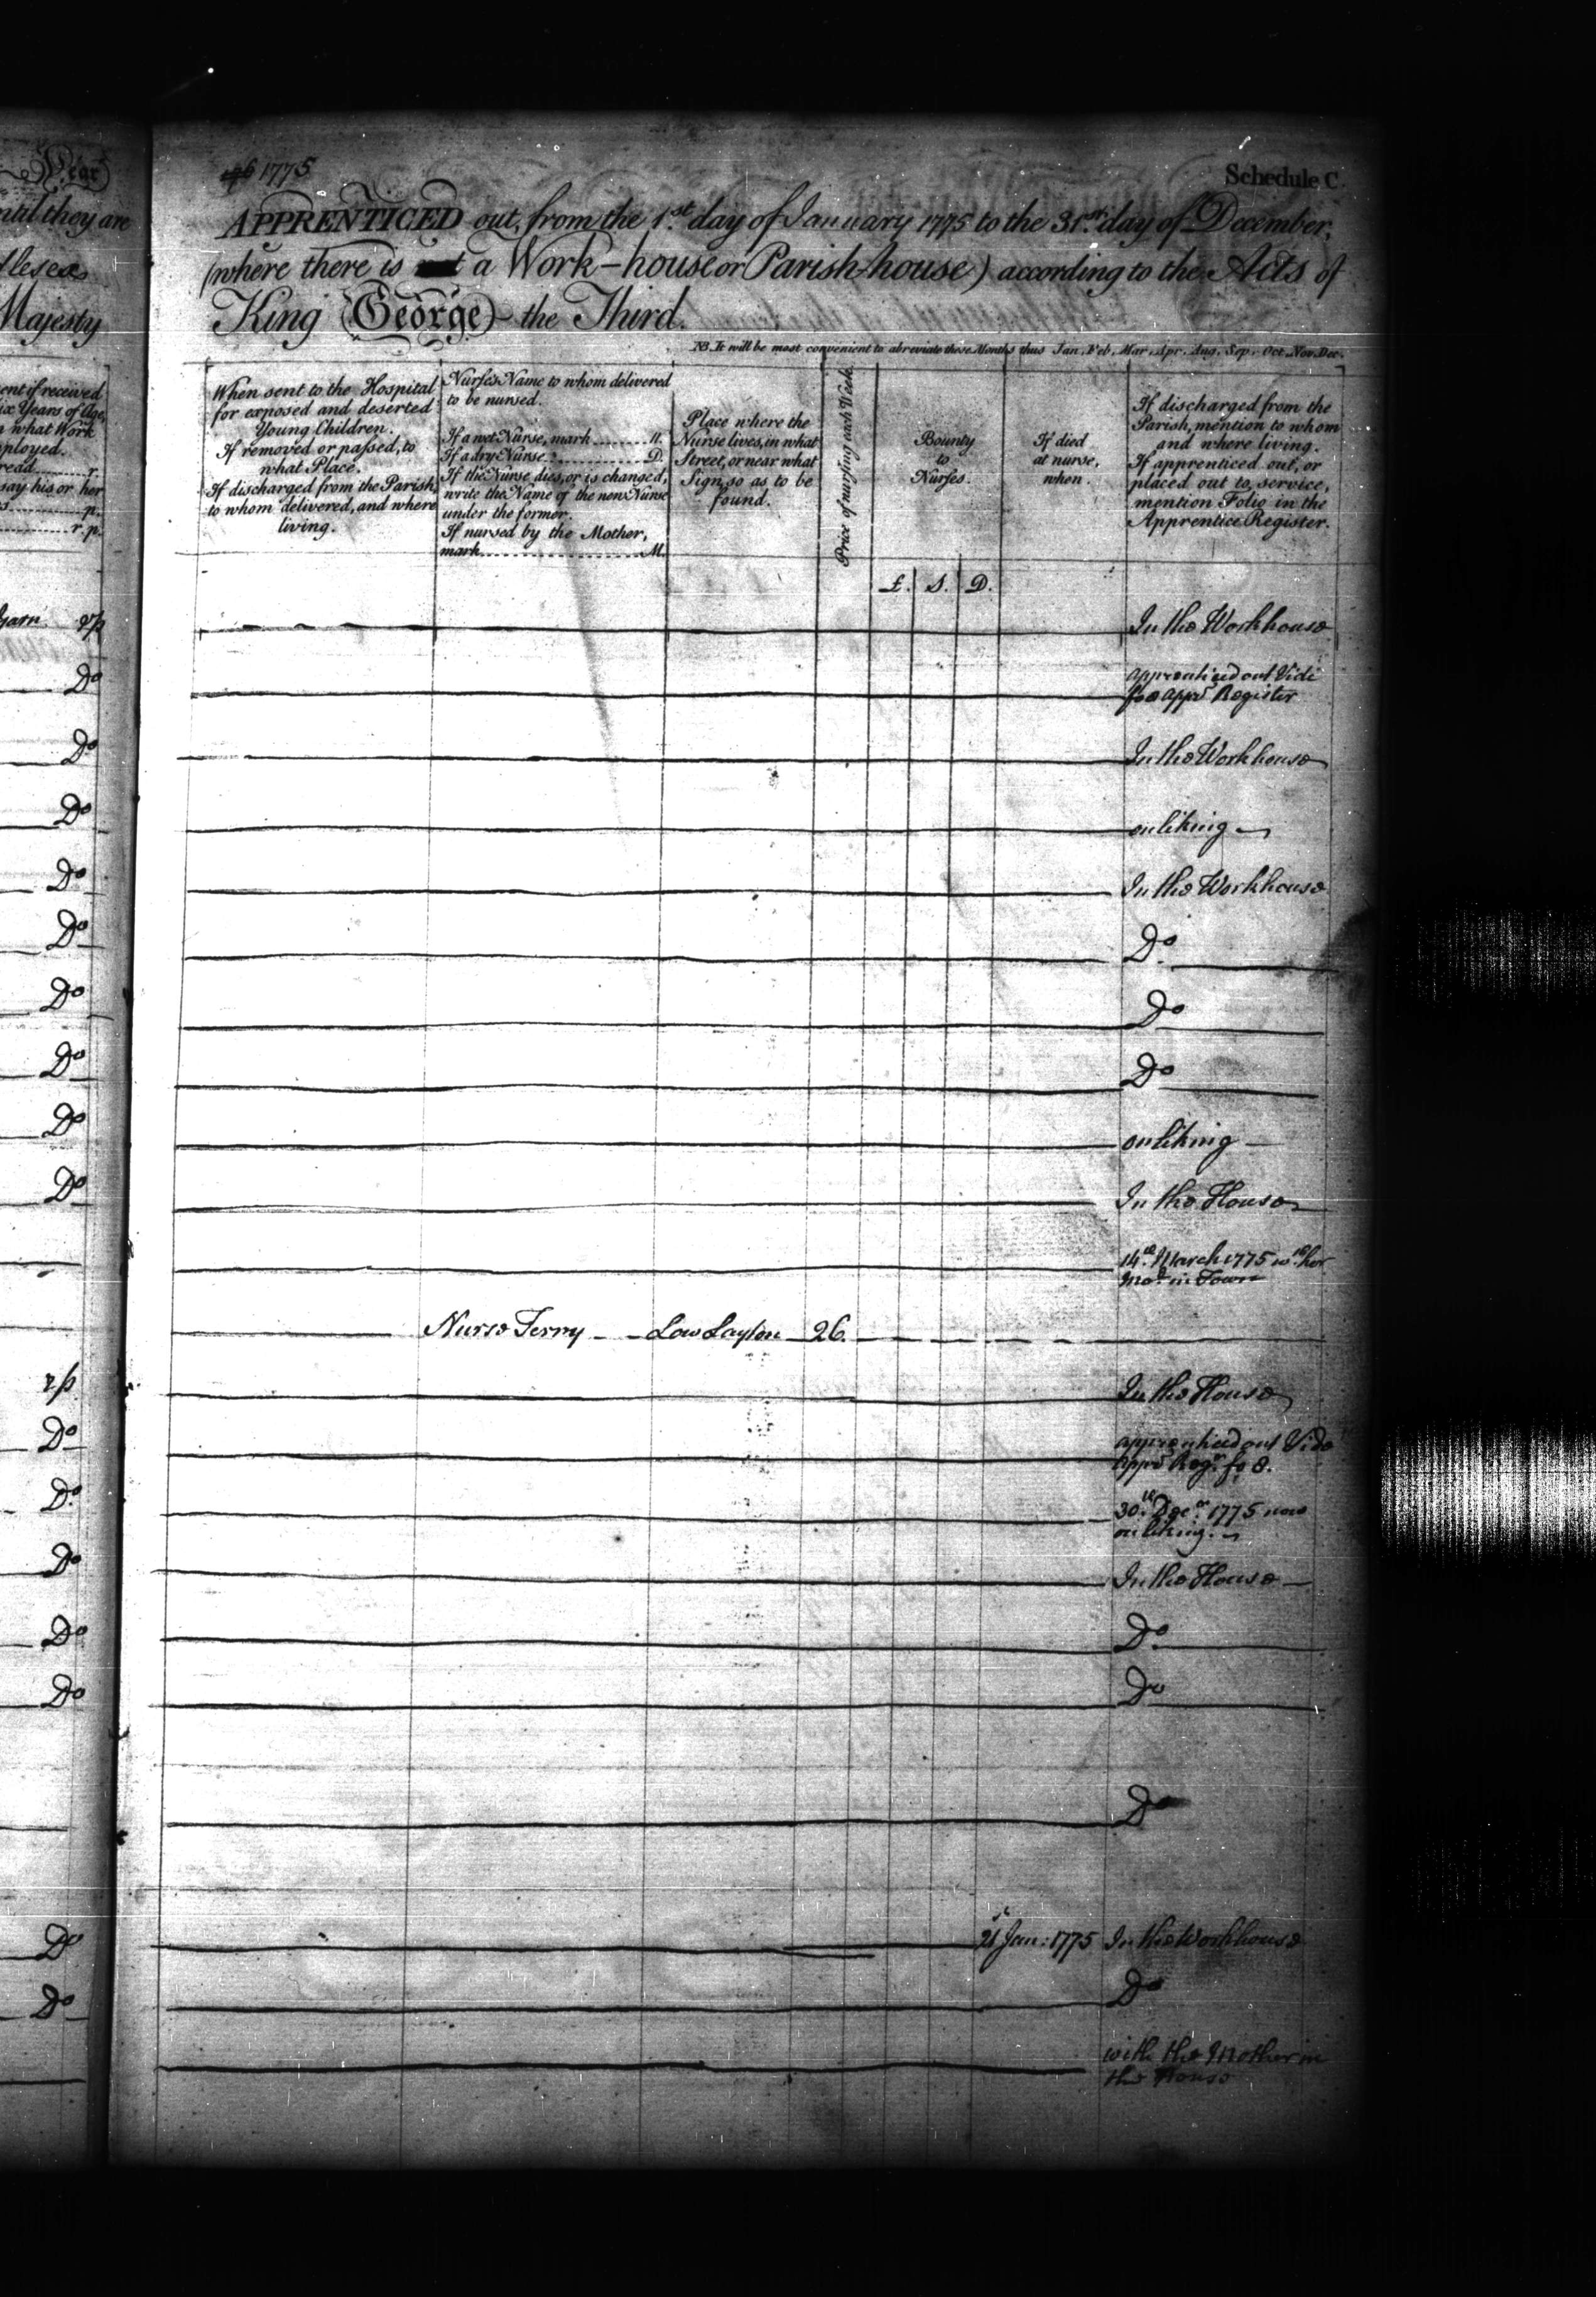 Year
until they are
dlesex
Majesty
ent if received
ix Years of Age,
n what Work
ployed.
read........r.
say his or her
s........p.
........r.p.
Yarn r/p
Do
Do
Do
Do
Do
Do
Do
Do
Do
r/p
Do
Do
Do
Do
Do
Do
Do
1775
Schedule C.
APPRENTICED out, from the 1.st day of January 1775 to the 31.st day of December,
(where there is a Work-house or Parish-house) according to the Acts of
King George the Third.
NB. It will be most convenient to abreviate these Months thus Jan. Feb. Mar. Apr. Aug. Sep. Oct. Nov. Dec.
When sent to the Hospital
for exposed and deserted
Young Children.
If removed or passed, to
what Place.
If discharged from the Parish,
to whom delivered, and where
living.
Nurse's Name to whom delivered
to be nursed.
If a wet Nurse, mark........W.
If a dry Nurse........D.
If the Nurse dies, or is changed,
write the Name of the new Nurse
under the former.
If nursed by the Mother,
mark........M.
Place where the
Nurse lives, in what
Street, or near what
Sign, so as to be
found.
Price of nursing each Week
Bounty
to
Nurses.
£. S. D.
If died
at nurse,
when.
If discharged from the
Parish, mention to whom
and where living.
If apprenticed out, or
placed out to service,
mention Folio in the
Apprentice Register.
In the Workhouse
apprenticed out Vide
fo 8 appr Register
In the Workhouse
on liking
In the Workhouse
Do
Do
Do
on liking
In the House
14th March 1775 wth her
Mor in Town
Nurse Terry Low Layton 26
In the House
apprenticed out Vide
appr Regr fo 8.
30th Decr 1775 now
on liking.
In the House
Do
Do
Do
21st Jan: 1775 In the Workhouse
Do
with the Mother in
the House